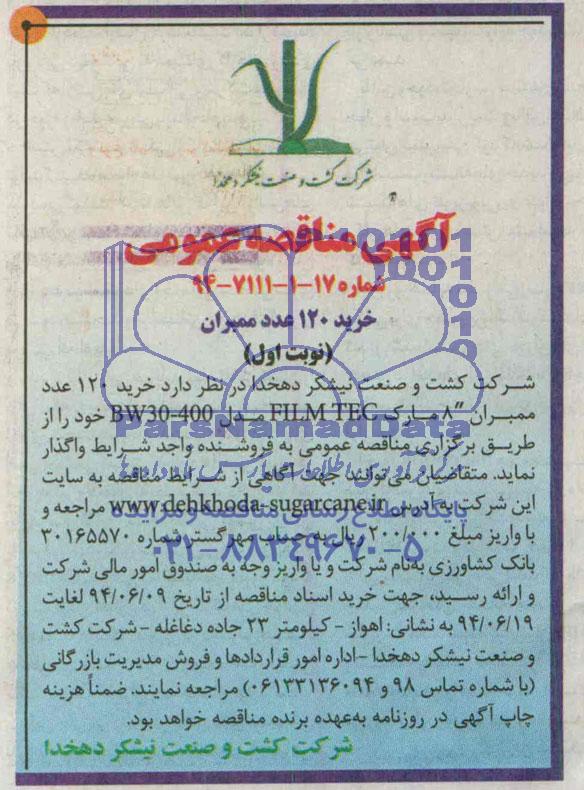 شرکت کشت و صنعت نیشکر دهخدا
آگهی مناقصه عمومی
شماره ۱۷-۱-۷۱۱۱-۹۴
خرید ۱۲۰ عدد ممبران
(نوبت اول)
شرکت کشت و صنعت نیشکر دهخدا در نظر دارد خرید ۱۲۰ عدد
ممبران ″۸ مارک FILM TEC مدل BW30-400 خود را از
طریق برگزاری مناقصه عمومی به فروشنده واجد شرایط واگذار
نماید. متقاضیان می‌توانند جهت آگاهی از شرایط مناقصه به سایت
این شرکت به آدرس www.dehkhoda-sugarcane.ir مراجعه و
با واریز مبلغ ۲۰۰/۰۰۰ ریال به حساب مهر گستر شماره ۳۰۱۶۵۵۷۰
بانک کشاورزی به‌نام شرکت و یا واریز وجه به صندوق امور مالی شرکت
و ارائه رسید، جهت خرید اسناد مناقصه از تاریخ ۹۴/۰۶/۰۹ لغایت
۹۴/۰۶/۱۹ به نشانی: اهواز - کیلومتر ۲۳ جاده دغاغله - شرکت کشت
و صنعت نیشکر دهخدا - اداره امور قراردادها و فروش مدیریت بازرگانی
(با شماره تماس ۹۸ و ۰۶۱۳۳۱۳۶۰۹۴) مراجعه نمایند. ضمناً هزینه
چاپ آگهی در روزنامه به‌عهده برنده مناقصه خواهد بود.
شرکت کشت و صنعت نیشکر دهخدا
ParsNamadData
پایگاه اطلاع رسانی مناقصه و مزایده
۰۲۱-۸۸۳۴۹۶۷۰-۵